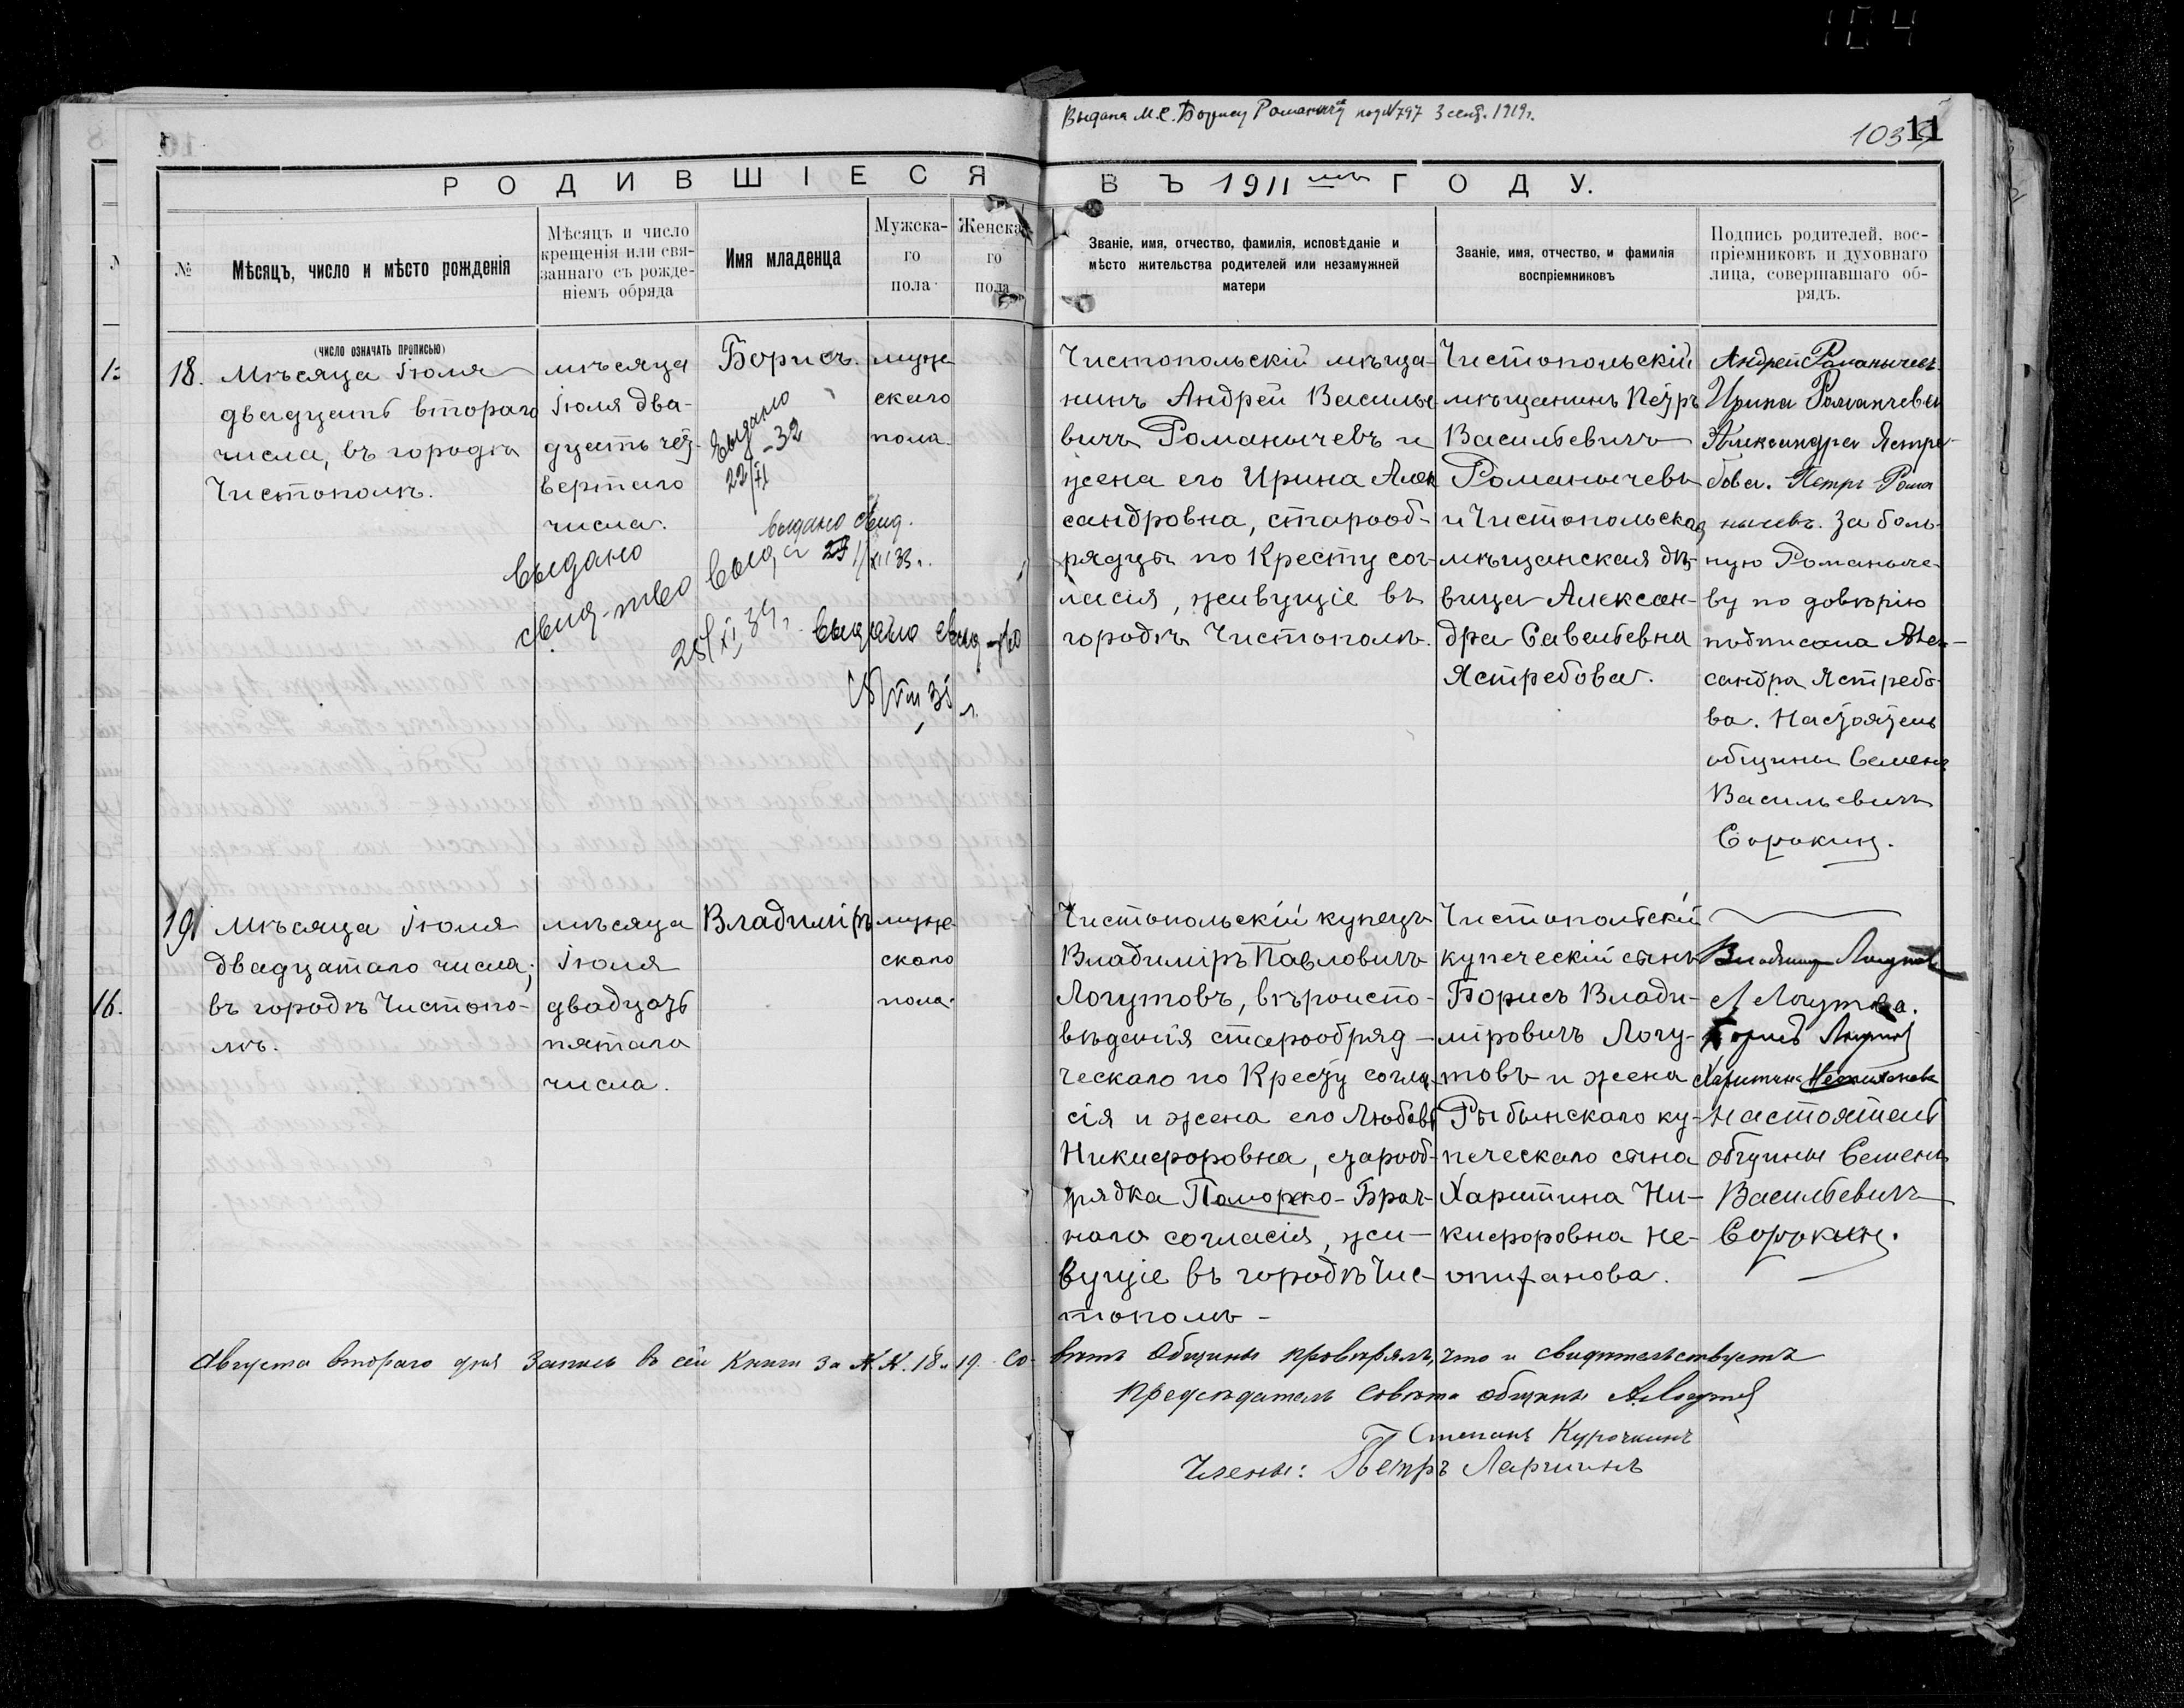 104
Выдана М.С. Борису Романычеву под № 797 3 сент. 1919 г.
103
11
РОДИВШІЕСЯ ВЪ 1911 мъ ГОДУ.
№
Мѣсяцъ, число и мѣсто рожденія
Мѣсяцъ и число
крещенія или свя-
заннаго съ рожде-
ніемъ обряда
Имя младенца
Мужска-
го
пола
Женска
го
пола
Званіе, имя, отчество, фамилія, исповѣданіе и
мѣсто жительства родителей или незамужней
матери
Званіе, имя, отчество, и фамилія
воспріемниковъ
Подпись родителей, вос-
пріемниковъ и духовнаго
лица, совершавшаго об-
рядъ.
(ЧИСЛО ОЗНАЧАТЬ ПРОПИСЬЮ)
18.
Мѣсяца Іюля
двадцать втораго
числа, въ городѣ
Чистополѣ.
мѣсяца
Іюля два-
дцать чет-
вертаго
числа.
Борисъ.
муж
скаго
пола.
выдано
22/XI-32
выдано свид.
выдано
свид-тво
28/XI 34 г.
выдано свид-тво
Чистопольскій мѣща-
нинъ Андрей Василье-
вичъ Романычевъ и
жена его Ирина Алек
сандровна, старооб-
рядцы по Кресту сог-
ласія, живущіе въ
городѣ Чистополѣ.
Чистопольскій
мѣщанинъ Петръ
Васильевичъ
Романычевъ
и Чистопольская
мѣщанская дѣ-
вица Алексан-
дра Савельевна
Ястребова.
Андрей Романычевъ
Ирина Романчева
Александра Ястре-
бова. Петръ Рома
нычевъ. За боль-
ную Романыче-
ву по довѣрію
подписала Алек-
сандра Ястребо-
ва. Настоятель
общины Семенъ
Васильевичъ
Сорокинъ.
19.
Мѣсяца Іюля
двадцатаго числа;
въ городѣ Чистопо-
лѣ.
мѣсяца
Іюля
двадцать
пятаго
числа.
Владиміръ
муже-
скаго
пола.
Чистопольскій купецъ
Владиміръ Павловичъ
Логутовъ, вѣроиспо-
вѣданія старообряд-
ческаго по Кресту согла-
сія и жена его Любовь
Никифоровна, старооб-
рядка Поморско-Брач-
наго согласія, жи-
вущіе въ городѣ Чис-
тополѣ -
Чистопольскій
купеческій сынъ
Борисъ Влади-
міровичъ Логу-
товъ и жена
Рыбынскаго ку-
печескаго сына
Харитина Ни-
кифоровна Не-
опиханова.
Владимир Логутов
Л Логутова.
Борисъ Логутов
Харитина Неопиханова
Настоятель
общины Семенъ
Васильевичъ
Сорокинъ.
16.
Августа втораго дня Запись въ сей Книги за №№. 18 и 19. Со-
вѣтъ Общины провѣрялъ, что и свидѣтельствуетъ
Предсѣдатель Совѣта общины А. Логутов
Степанъ Курочкинъ
Члены: Петръ Ларшинъ